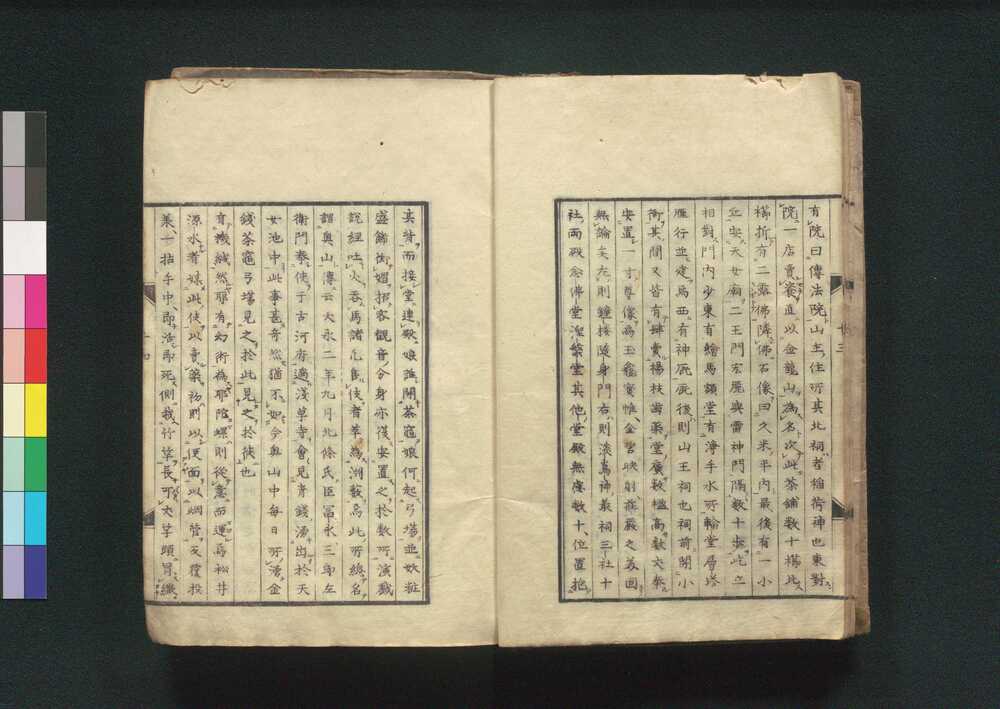 有院曰傳法院山主住所其北祠者稲荷神也東對
院一店賣
直以金龍山為名次此茶鋪數十楊北
横折有二露佛隣佛石像曰久米平内最後有一小
丘安天女廟二王門宏麗與雷神門隔數十歩屹立
相對門内少東有繪馬額堂有淨手水所輪堂層塔
雁行並建焉西有神厩厩後則山王祠也祠前開小
衖其間又皆有肆賣楊枝齒藥堂廣數楹高數丈奉
安置一寸尊像為玉龕寶帷金碧映射莊嚴之美固
無論矣左則鐘楼隨身門右則淡島神最祠三社十
社兩殿念佛堂涅槃堂其他堂殿無慮數十位置抱
其背而接堂連殿娘誰開茶竈娘何起弓場並妝
盛飾衒媚招客觀音分身亦復安置之於數所演戲
説經吐火吞馬諸
伎者萃為淵藪焉此所総名
謂奥山傳云大永二年九月北條氏臣冨永三郎左
衛門奉使于古河府過淺草寺會見青錢湧出於天
女池中此事甚奇然猶不如今奥山中毎日所湧金
錢茶竈弓場見之於此見之於彼也
身機緘然耶有幻術為耶陀螺則從意而運焉松井
源水者媒此使以賣藥初則以便面以烟管反覆投
棄一拈手中即活即死側我竹竿長可丈竿頭冒